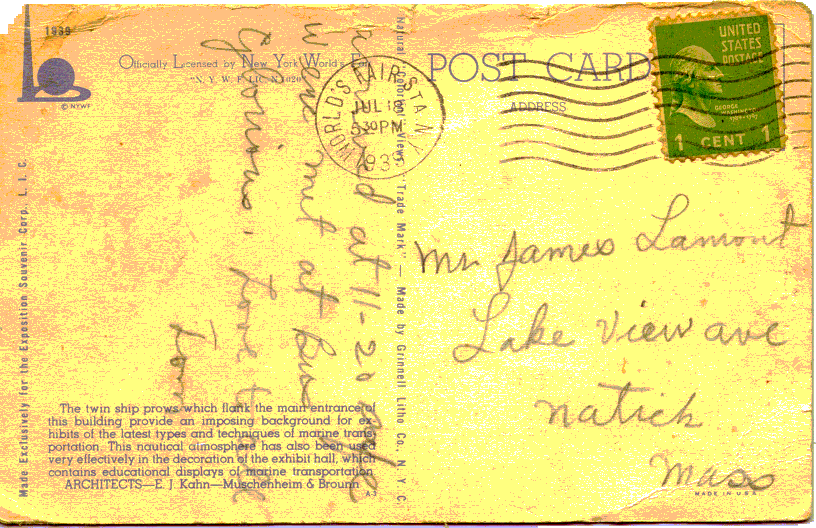 1939
© NYWF
Officially Licensed by New York World's Fair
"N. Y. W. F. LIC.
POST CARD
ADDRESS
WORLD'S FAIR STA. N.Y.
JUL 18
530PM
1939
UNITED
STATES
POSTAGE
GEORGE
WASHINGTON
1 CENT 1
Arrived at 11-20 safe
were met at Bus
Glorious. Love to
Mr. James Lamont
Lake View ave
Natick
Mass
The twin ship prows which flank the main entrance of
this building provide an imposing background for ex-
hibits of the latest types and techniques of marine trans-
portation. This nautical atmosphere has also been used
very effectively in the decoration of the exhibit hall, which
contains educational displays of marine transportation.
ARCHITECTS—E. J. Kahn—Muschenheim & Brounn
Made Exclusively for the Exposition Souvenir Corp. L. I. C.
Natural "Colorednt" Views, "Trade Mark" — Made by Grinnell Litho Co., N. Y. C.
MADE IN U.S.A.